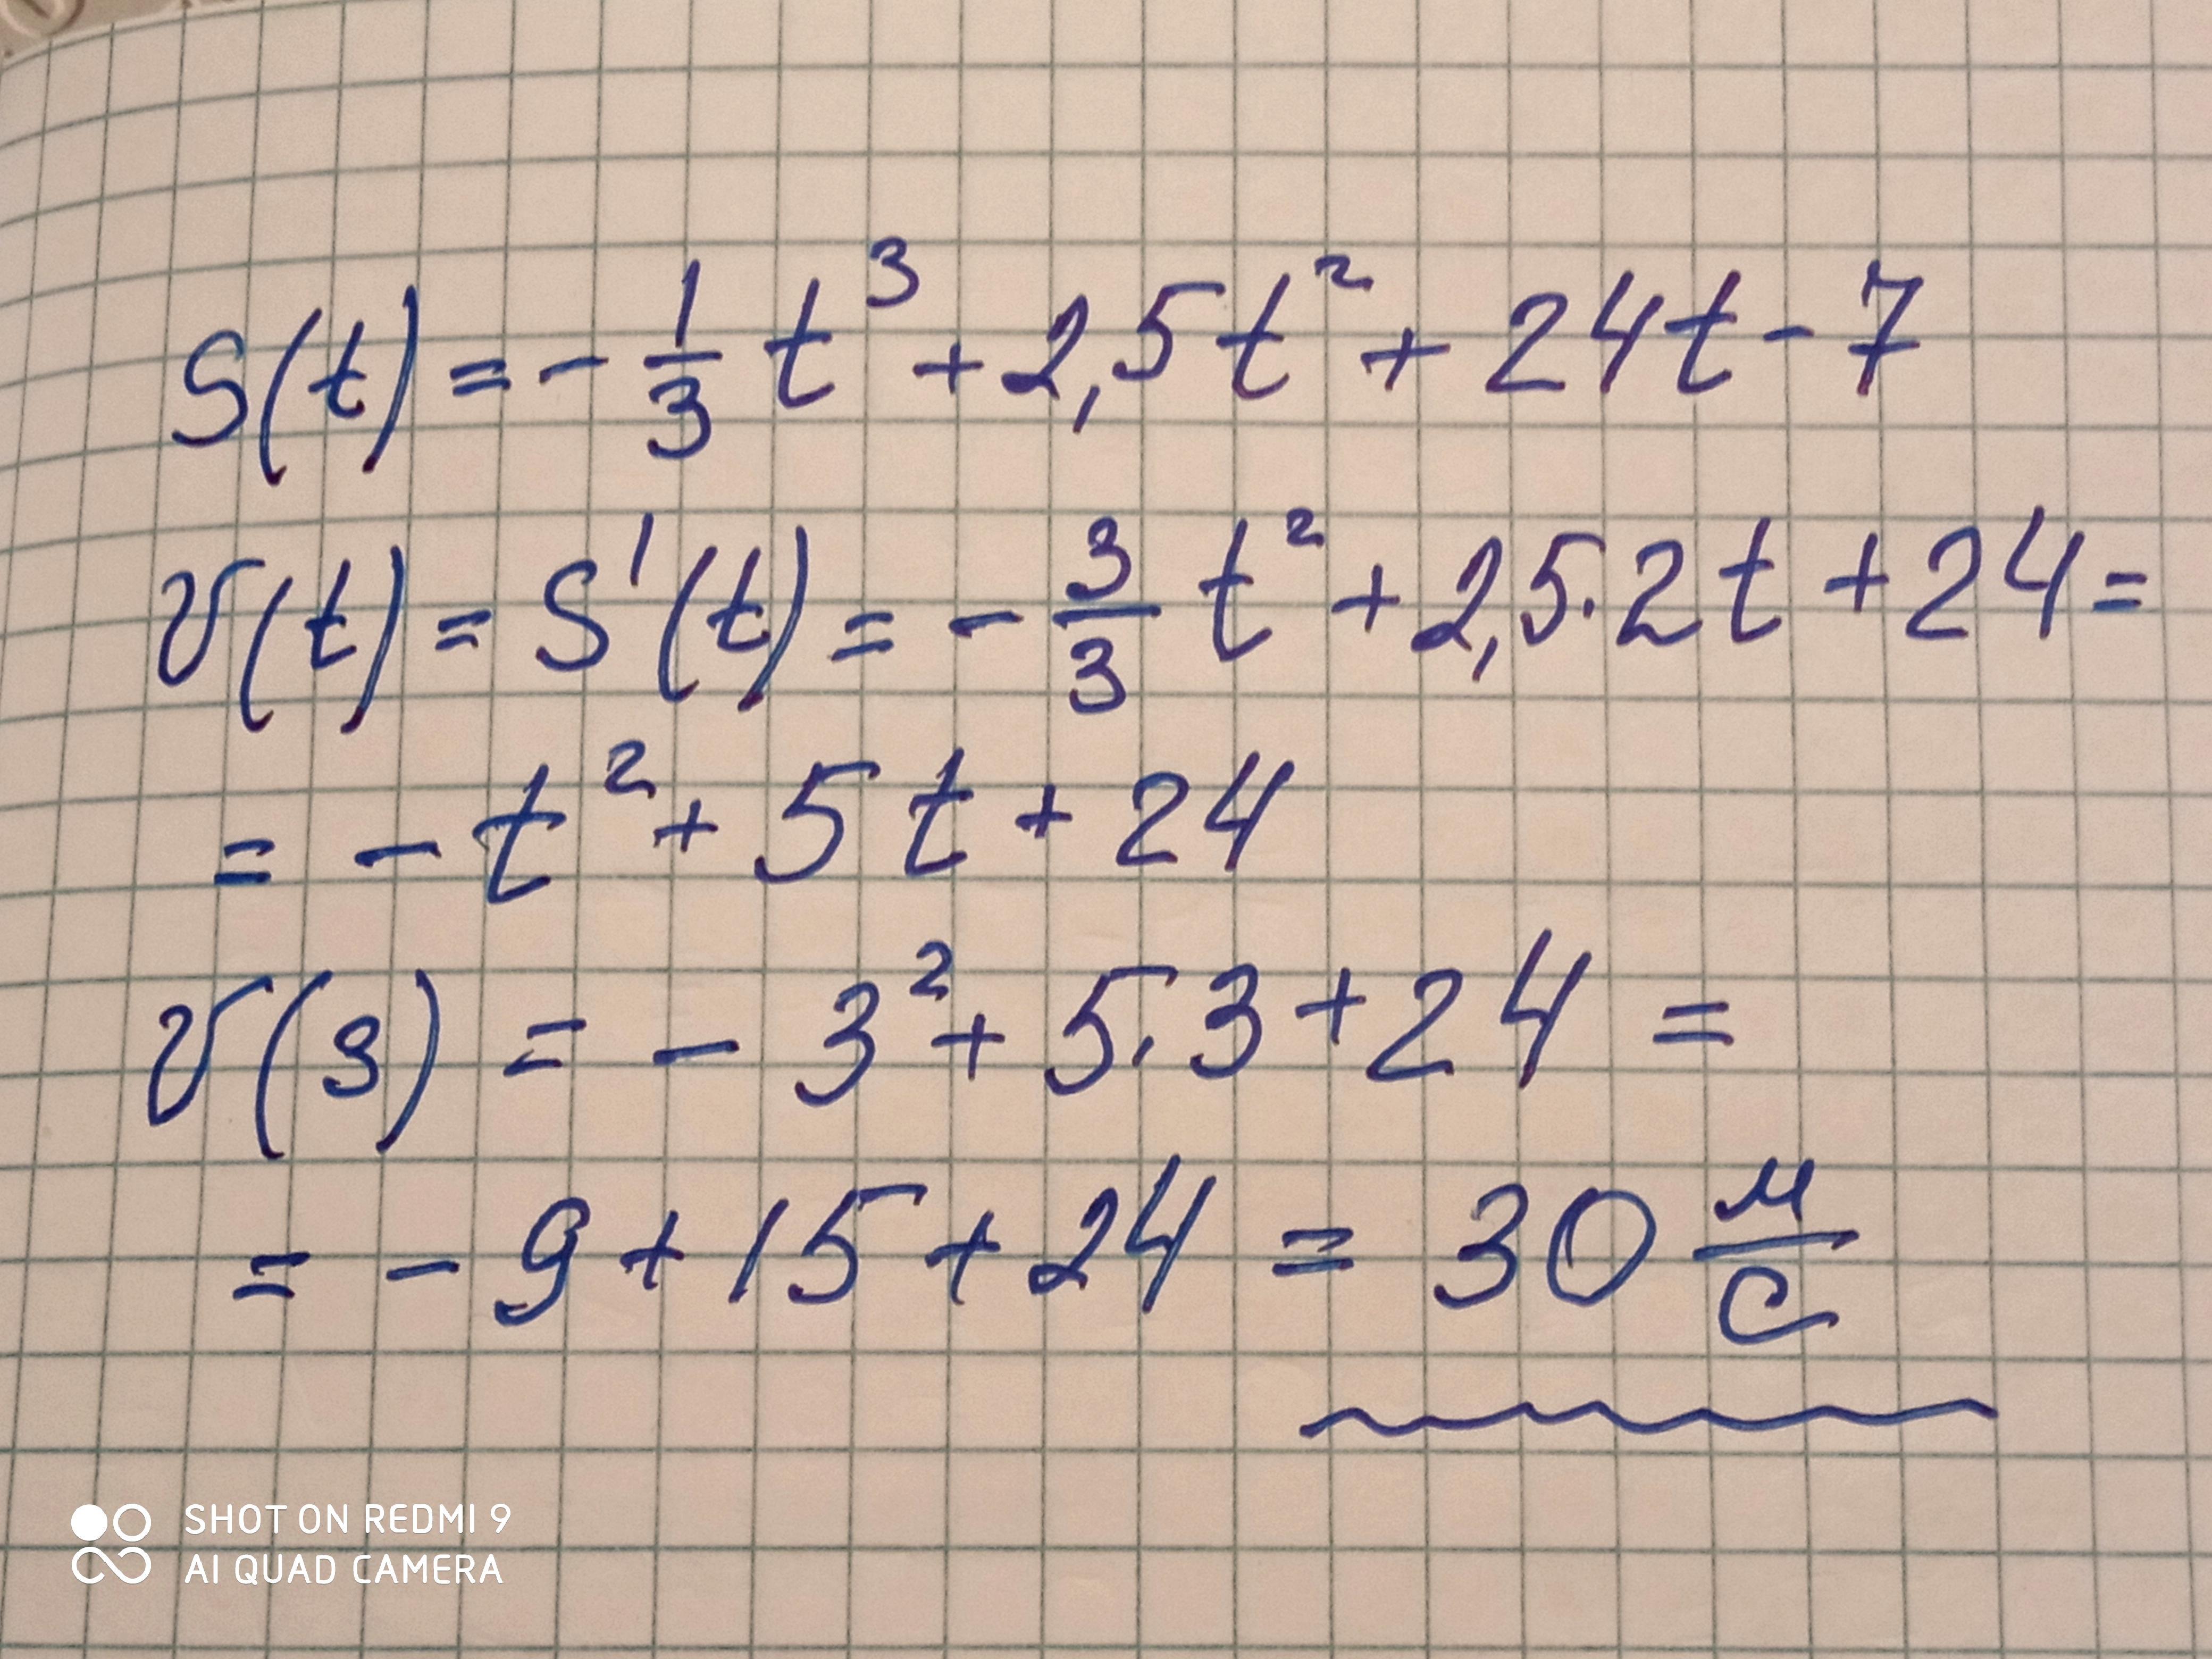 S(t) = - 1/3 t³ + 2,5t² + 24t - 7
V(t) = S'(t) = - 3/3 t² + 2,5·2t + 24 =
= - t² + 5t + 24
V(3) = - 3² + 5·3 + 24 =
= - 9 + 15 + 24 = 30 м/с
SHOT ON REDMI 9
AI QUAD CAMERA